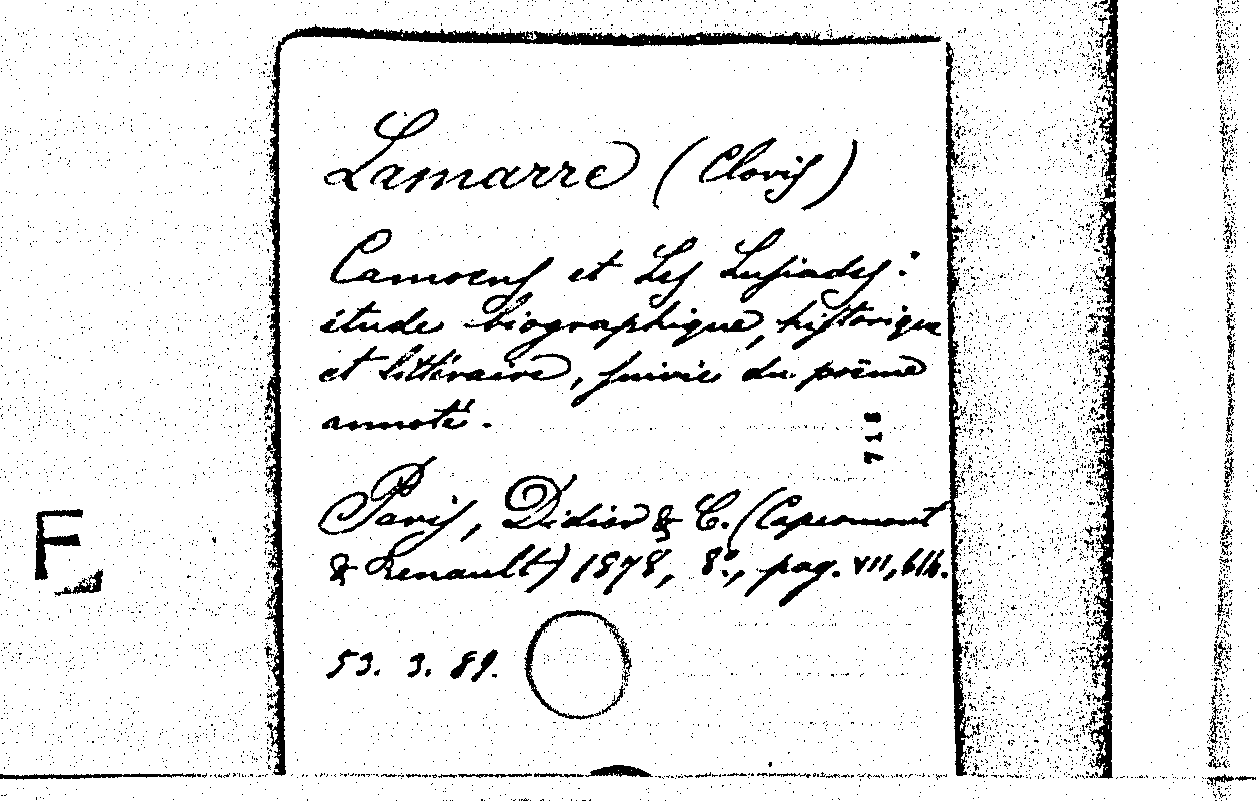 Lamarre (Clovis)
Camoens et Les Lusiades:
étude biographique, historique
et littéraire, suivie du poëme
annoté.
718
Paris, Didier & C. (Capiomont
& Renault) 1878, 8º, pag. VII, 614.
F
53. 3. 89.